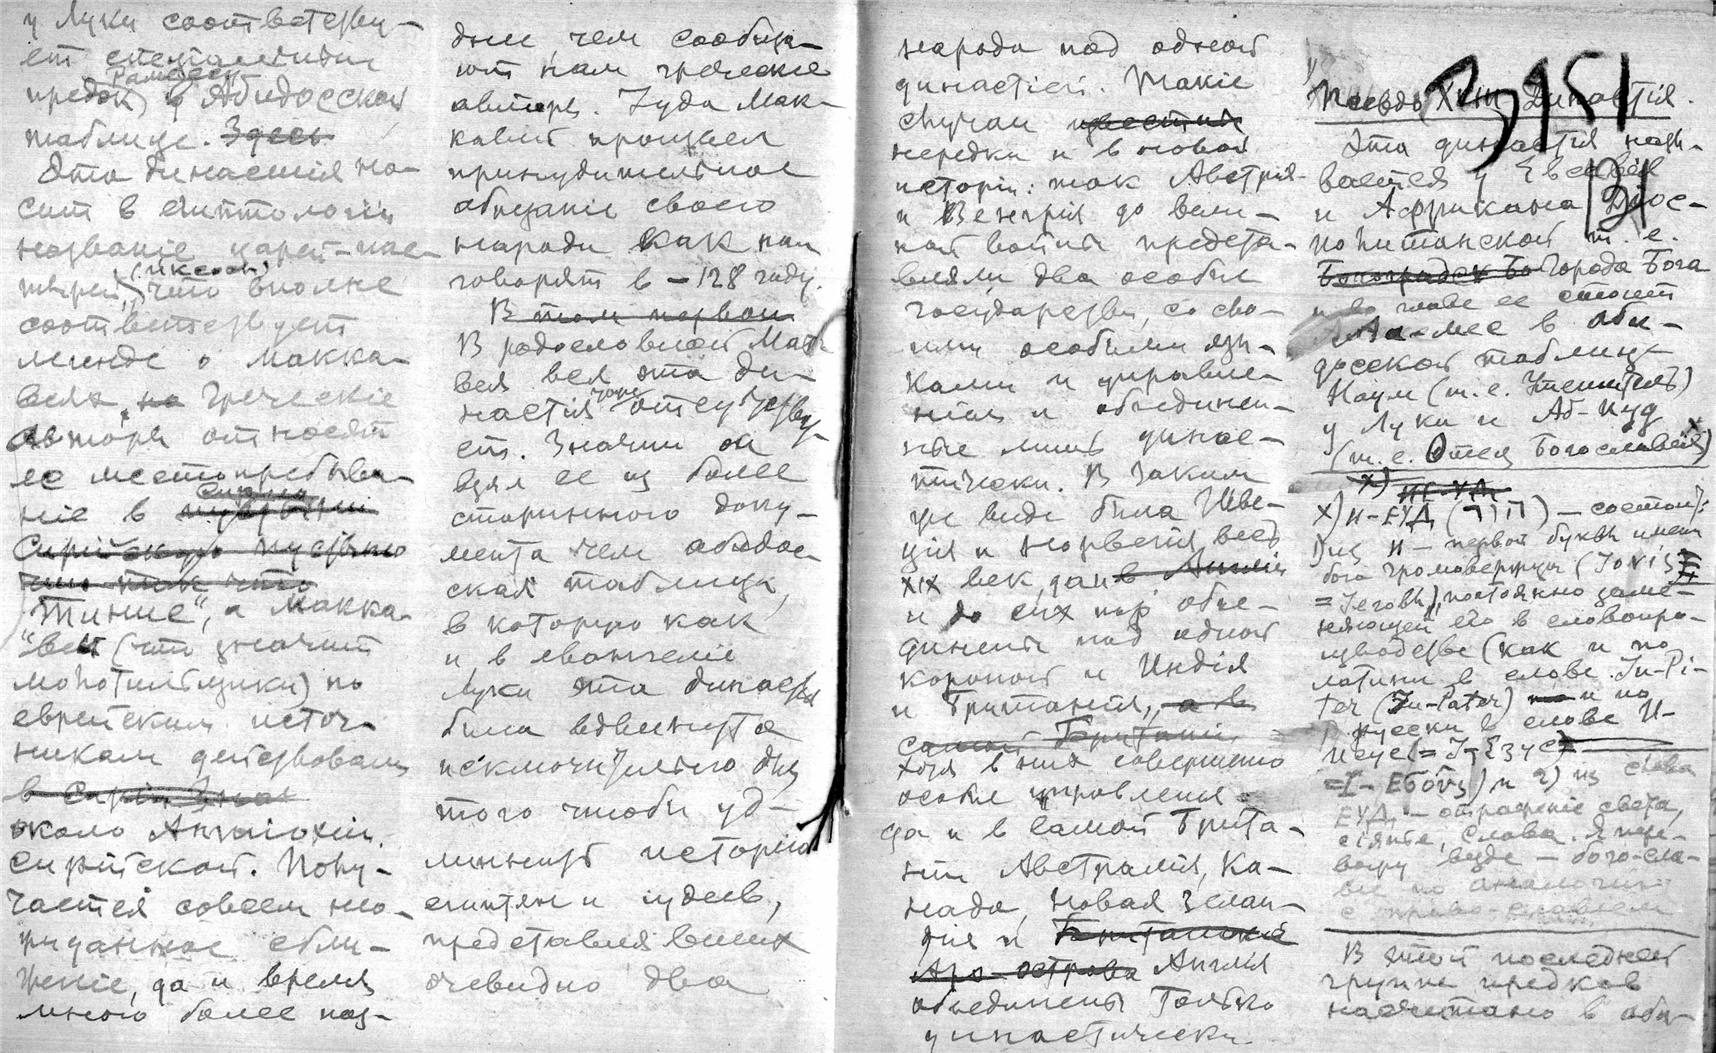 у Луки соответству-
ет
предок у Абидосской
Рамзеса
таблице. Здесь
Эта династия но-
сит в египтологии
название царей-пас-
тырей, (иксосы) что вполне
соответствует
легенде о макка-
веях, но греческие
авторы относят
ее местопребыва-
ние в
Сирийскую пустыню
или так что
а Макка-
веи (что значит
молотильщики) по
еврейским источ-
никам действовали
в Сирии
около Антиохии
Сирийской. Полу-
чается совсем нео-
жиданное сбли-
жение, да и время
много более поз-
днее, чем сообща-
ют нам греческие
авторы. Иуда Мак-
кавей прошел
принудительное
обрезание своего
народа как нам
говорят в -128 году.
В том первом
В родословной Мат-
вея вся эта ди-
настия тоже отсутству-
ет. Значит он
взял ее из более
старинного доку-
мента чем абидос-
ская таблица,
в которую как
и в евангелие
Луки эта династия
была вдвинута
исключительно для
того чтобы уд-
линнить историю
египтян и иудеев,
представлявших
очевидно два
народа под одной
династией. Такие
случаи известны
нередки и в новой
истории: так Австрия
и Венгрия до вели-
кой войны предста-
вляли два особых
государства, со сво-
ими особыми язы-
ками и управле-
нием и объединен-
ные лишь динас-
тически. В таком
же виде была Шве-
ция и Норвегия весь
XIX век, да и в Англии
и до сих пор объе-
динены под одной
короной и Индия
и Британия, а в
самой Британии
хотя в них совершенно
особые управления.
да и в самой Брита-
нии Австралия, Ка-
нада, Новая Зелан-
дия и Британские
острова Англия
объединены только
династически.
Псевдо XVIII Династия.
151
Эта династия назы-
вается у Евсевия
и Африкана Диос-
политанской т. е.
Города Бога
и во главе ее стоит
Аа-мес в аби-
досской таблице
Наум (т. е. Утешитель)
у Луки и Аб-иуд x
(т. е. Отец Богославия)
x) И-ЕУД
x) И-ЕУД (הוד) — состоит:
1) из И — первой буквы имени
бога громовержца (Jovis
= Иеговы), постоянно заме-
няющей его в словопро-
изводстве (как и по
латыни в слове Ju-Pi-
ter (Ju-Pater) и по
русски в слове И-
исус
и 2) из слова
ЕУД — отражение света,
сияние, слова. Я пере-
вожу везде — бого-сла-
вие по аналогии
с право-славием
В этой последней
группе предков
насчитано в аби-